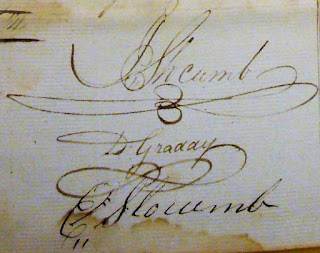 Slocumb
D Graddy
E Slocumb